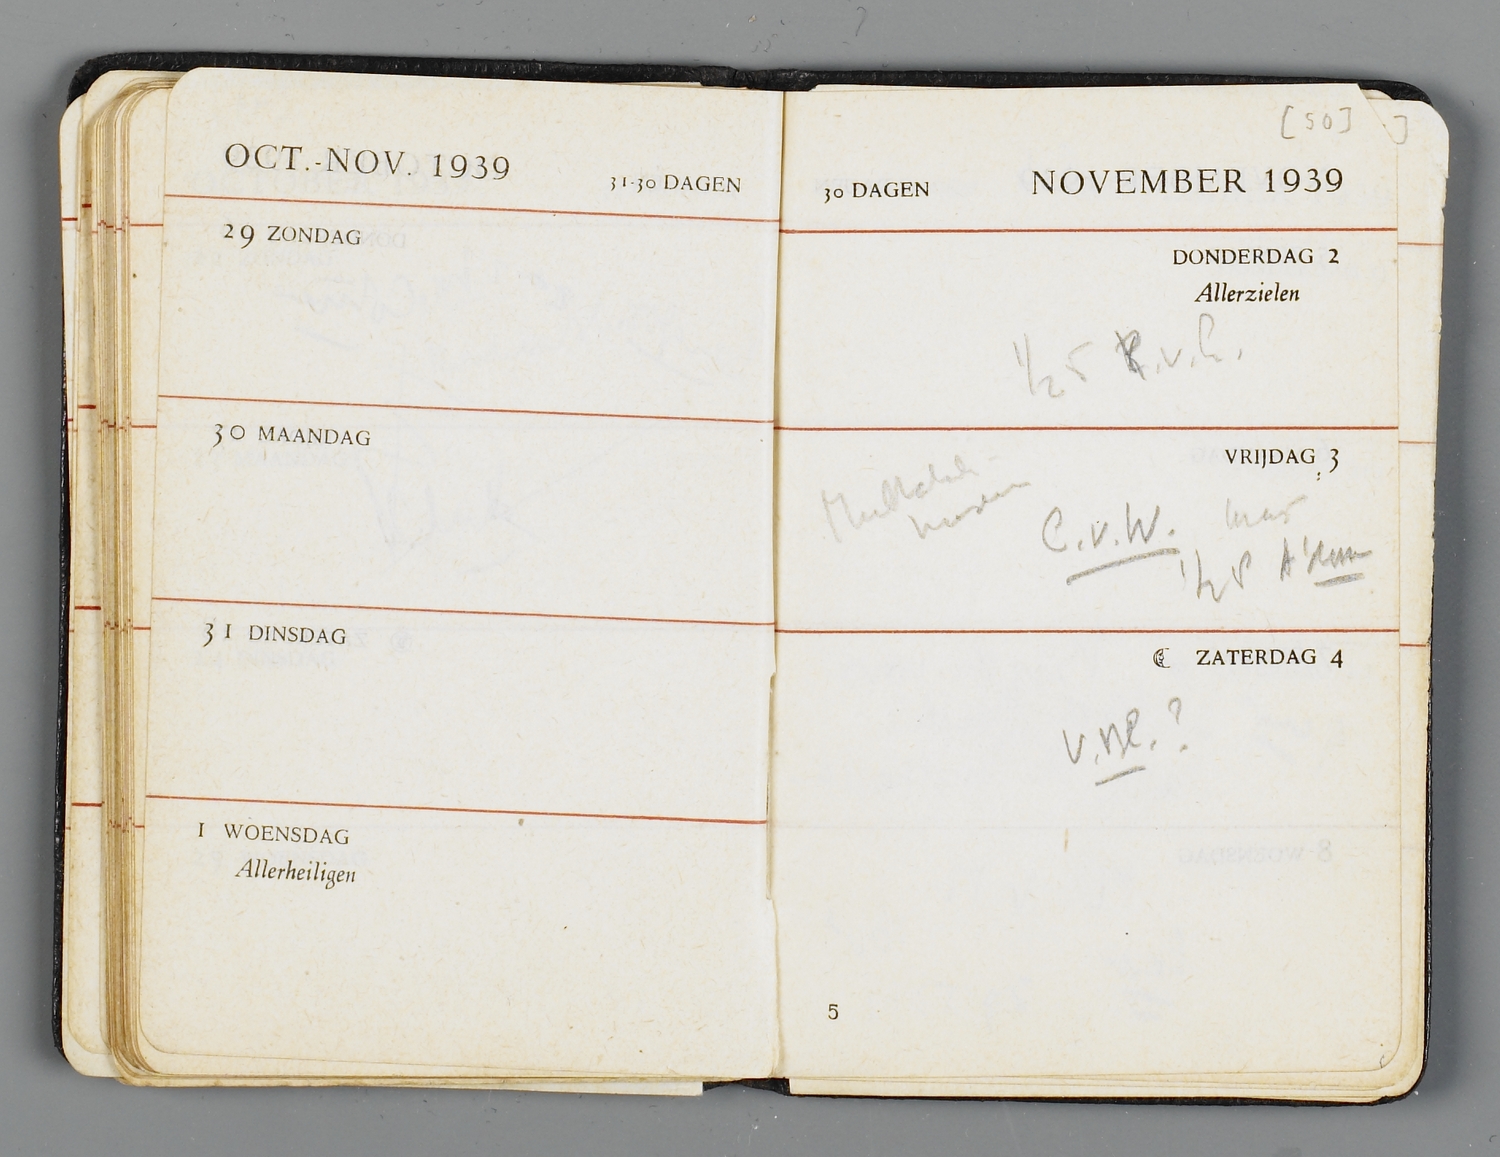 OCT.-NOV. 1939
31-30 DAGEN
29 ZONDAG
30 MAANDAG
31 DINSDAG
1 WOENSDAG
Allerheiligen
[50]
30 DAGEN
NOVEMBER 1939
DONDERDAG 2
Allerzielen
½5
VRIJDAG 3
C.v.W.
½5
ZATERDAG 4
?
5